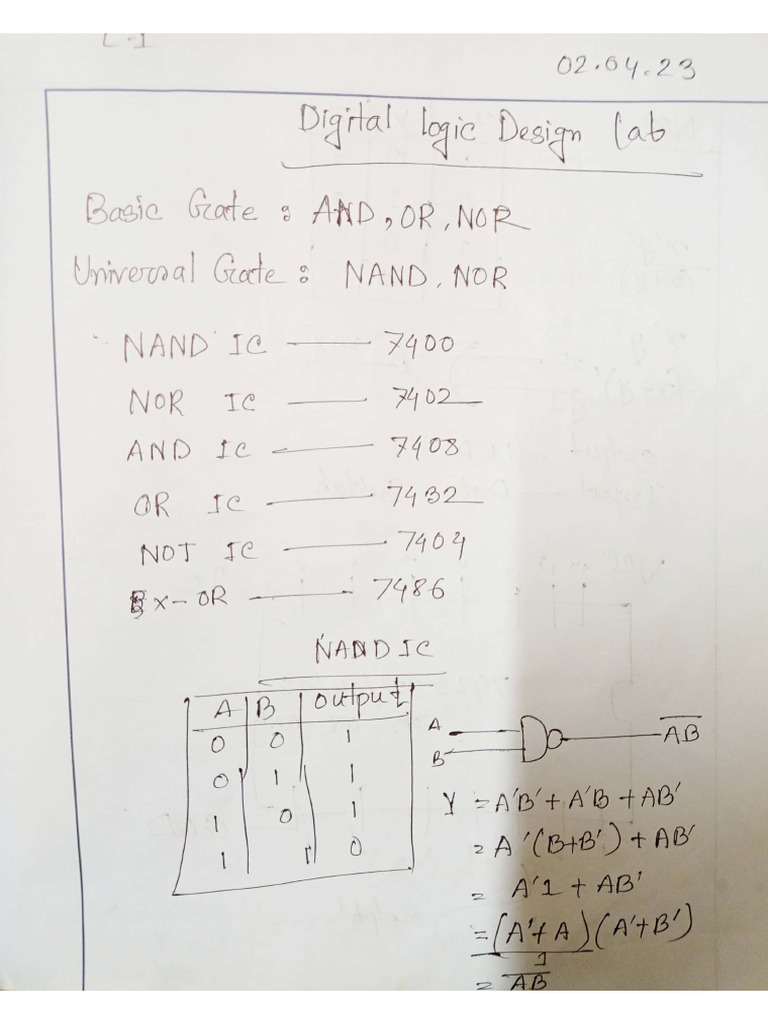 02.04.23
Digital Logic Design Lab
Basic Gate : AND, OR, NOR
Universal Gate : NAND, NOR
NAND IC —— 7400
NOR IC —— 7402
AND IC —— 7408
OR IC —— 7432
NOT IC —— 7404
Ex-OR —— 7486
NAND IC
A B output
0 0 1
0 1 1
1 0 1
1 1 0
A
B
A̅B̅
Y = A'B' + A'B + AB'
= A'(B+B') + AB'
= A'1 + AB'
= (A'+A)(A'+B')
1
= A̅B̅